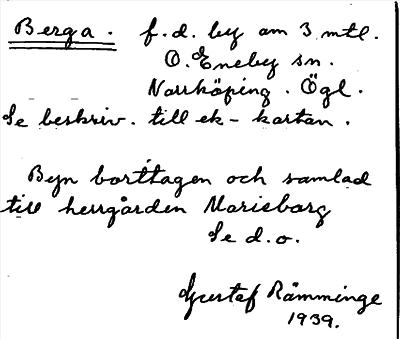 Berga. f.d. by om 3 mtl.
Ö. Eneby sn.
Norrköping. Ögl.
Se beskriv. till ek-kartan.
Byn borttagen och samlad
till herrgården Marieborg
Se d.o.
Gustaf Rämminge
1939.